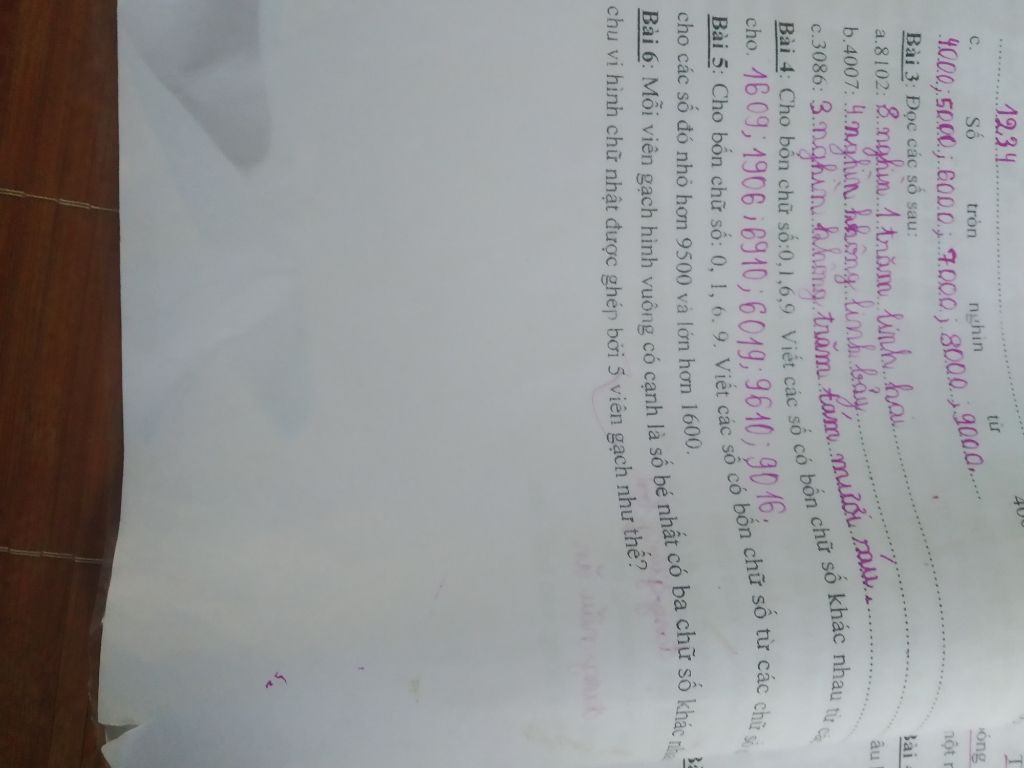 12.34
c. Số tròn nghìn từ 400
4000; 5000; 6000; 7000; 8000; 9000.
Bài 3: Đọc các số sau:
a.8102: 8 nghìn 1 trăm linh hai
b.4007: 4 nghìn không linh bảy,
c.3086: 3 nghìn không trăm tám mươi sáu.
Bài 4: Cho bốn chữ số:0,1,6,9 Viết các số có bốn chữ số khác nhau từ
cho. 1609; 1906; 6910; 6019; 9610; 9016;
Bài 5: Cho bốn chữ số: 0, 1, 6, 9. Viết các số có bốn chữ số từ các chữ số
cho các số đó nhỏ hơn 9500 và lớn hơn 1600.
Bài 6: Mỗi viên gạch hình vuông có cạnh là số bé nhất có ba chữ số khác
chu vi hình chữ nhật được ghép bởi 5 viên gạch như thế?